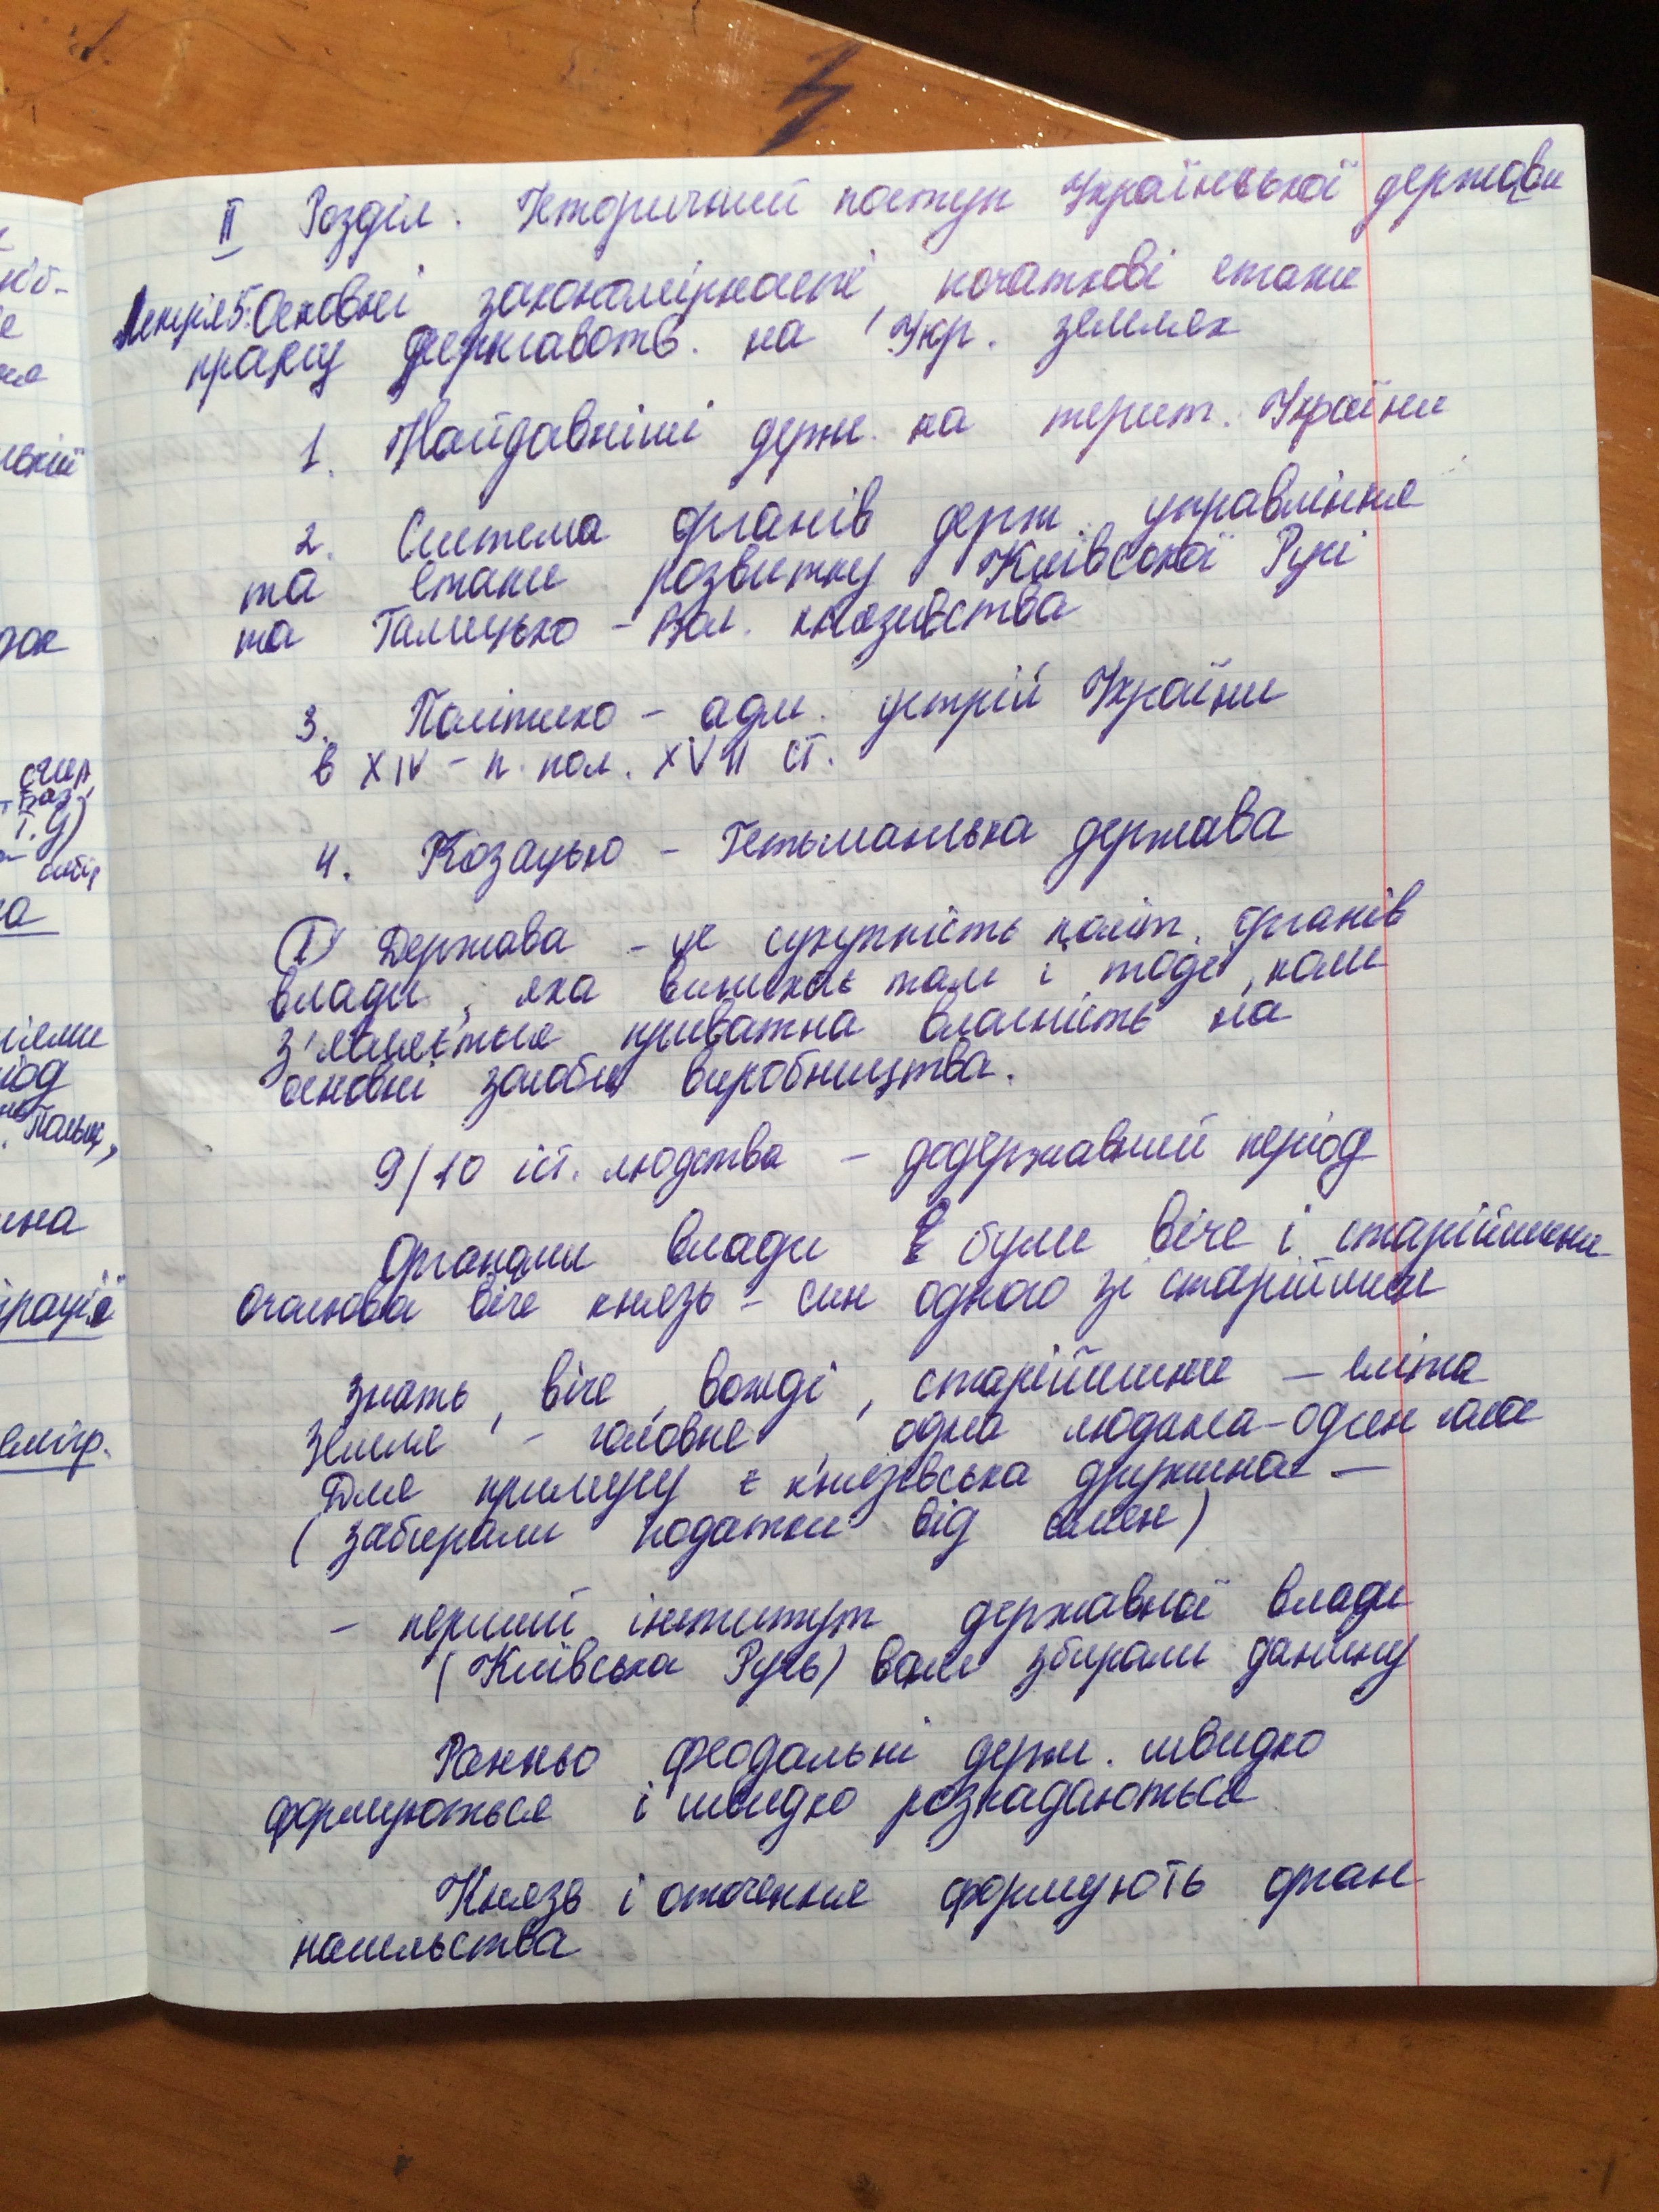 II Розділ. Історичний поступ Української держави
Лекція 5. Основні закономірності, початкові етапи
процесу державотв. на Укр. землях
1. Найдавніші держ. на терит. України
2. Система органів держ. управління
та етапи розвитку Київської Русі
та Галицько - Вол. князівства
3. Політико - адм. устрій України
в XIV - п. пол. XVII ст.
4. Козацько - Гетьманська держава
1 Держава - це сукупність політ. органів
влади, яка виникає там і тоді, коли
з'являється приватна власність на
основні засоби виробництва.
9/10 іст. людства - додержавний період
Органами влади були віче і старійшини
очолював віче князь - син одного зі старійшин
знать, віче, вожді, старійшини - еліта
Земля - головне, одна людина - один голос
Для примусу є князівська дружина -
(забирали податки від імен)
- перший інститут державної влади
(Київська Русь) вони збирали данину
Ранньо феодальні держ. швидко
формуються і швидко розпадаються
Князь і оточення формують орган
насильства
ок
на
рації
емігр.
Польщ,